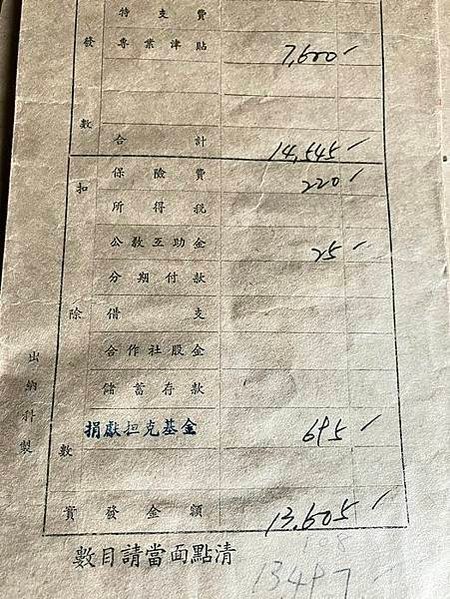 特支費
專業津貼 7,600-
發
數
合計 14,545-
扣 保險費 220-
所得稅
公教互助金 25-
分期付款
除 借支
合作社股金
儲蓄存款
捐獻担克基金 695-
數
實發金額 13,605-
出納科製
數目請當面點清